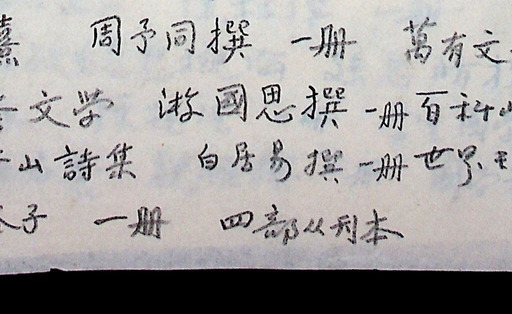 熹 周予同撰 一册 萬有文
文学 游國恩撰 一册 百科
山詩集 白居易撰 一册 世界
子 一册 四部丛刊本